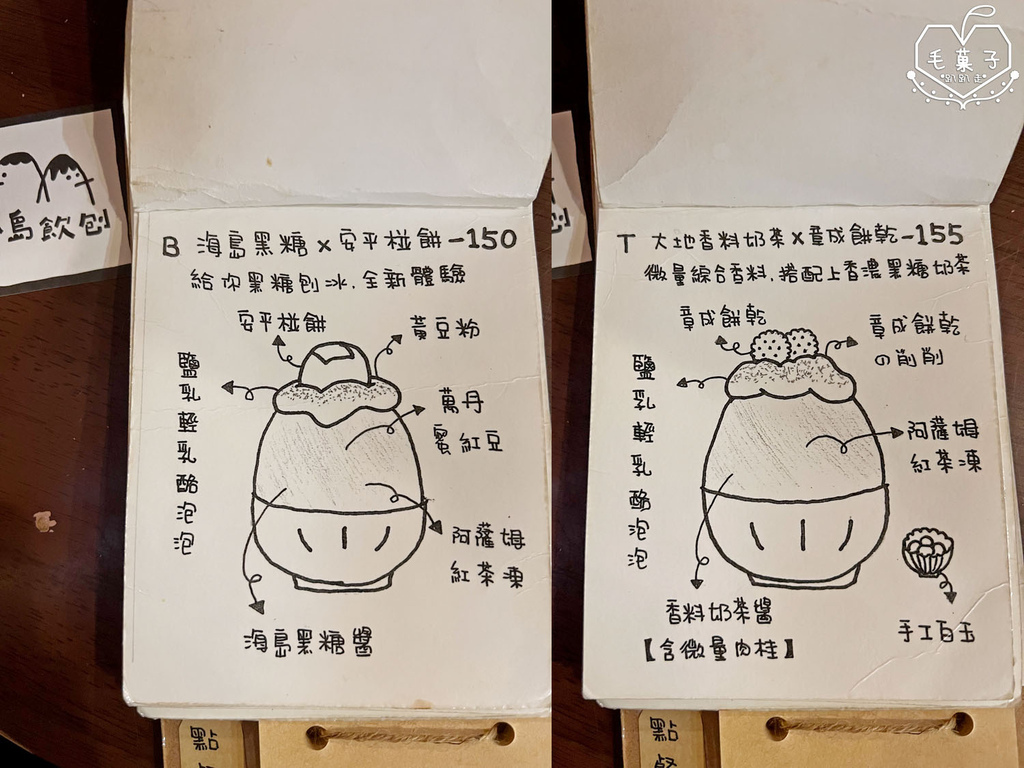 島飲刨
B 海島黑糖×安平椪餅-150
給你黑糖刨冰.全新體驗
安平椪餅
黃豆粉
鹽乳輕乳酪泡泡
萬丹
蜜紅豆
阿薩姆
紅茶凍
海島黑糖醬
點
毛菓子
趴趴走
T 大地香料奶茶×竟成餅乾-155
微量綜合香料,搭配上香濃黑糖奶茶
竟成餅乾
竟成餅乾
の削削
鹽乳輕乳酪泡泡
阿薩姆
紅茶凍
香料奶茶醬
【含微量肉桂】
手工白玉
點